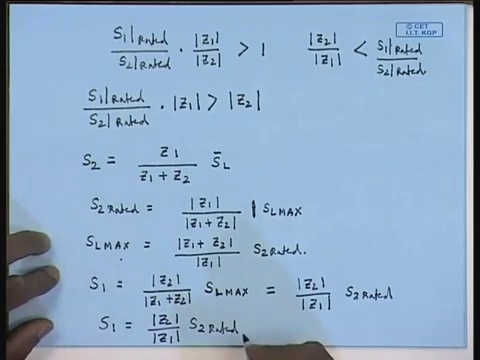 S1|Rated / S2|Rated · |Z1| / |Z2| > 1    |Z2| / |Z1| < S1|Rated / S2|Rated
© CET
I.I.T. KGP
S1|Rated / S2|Rated · |Z1| > |Z2|
S2 = Z1 / Z1 + Z2 S̄L
S2 Rated = |Z1| / |Z1 + Z2| | SLMAX
SLMAX = |Z1 + Z2| / |Z1| S2 Rated.
S1 = |Z2| / |Z1 + Z2| SLMAX = |Z2| / |Z1| S2 Rated
S1 = |Z2| / |Z1| S2 Rated